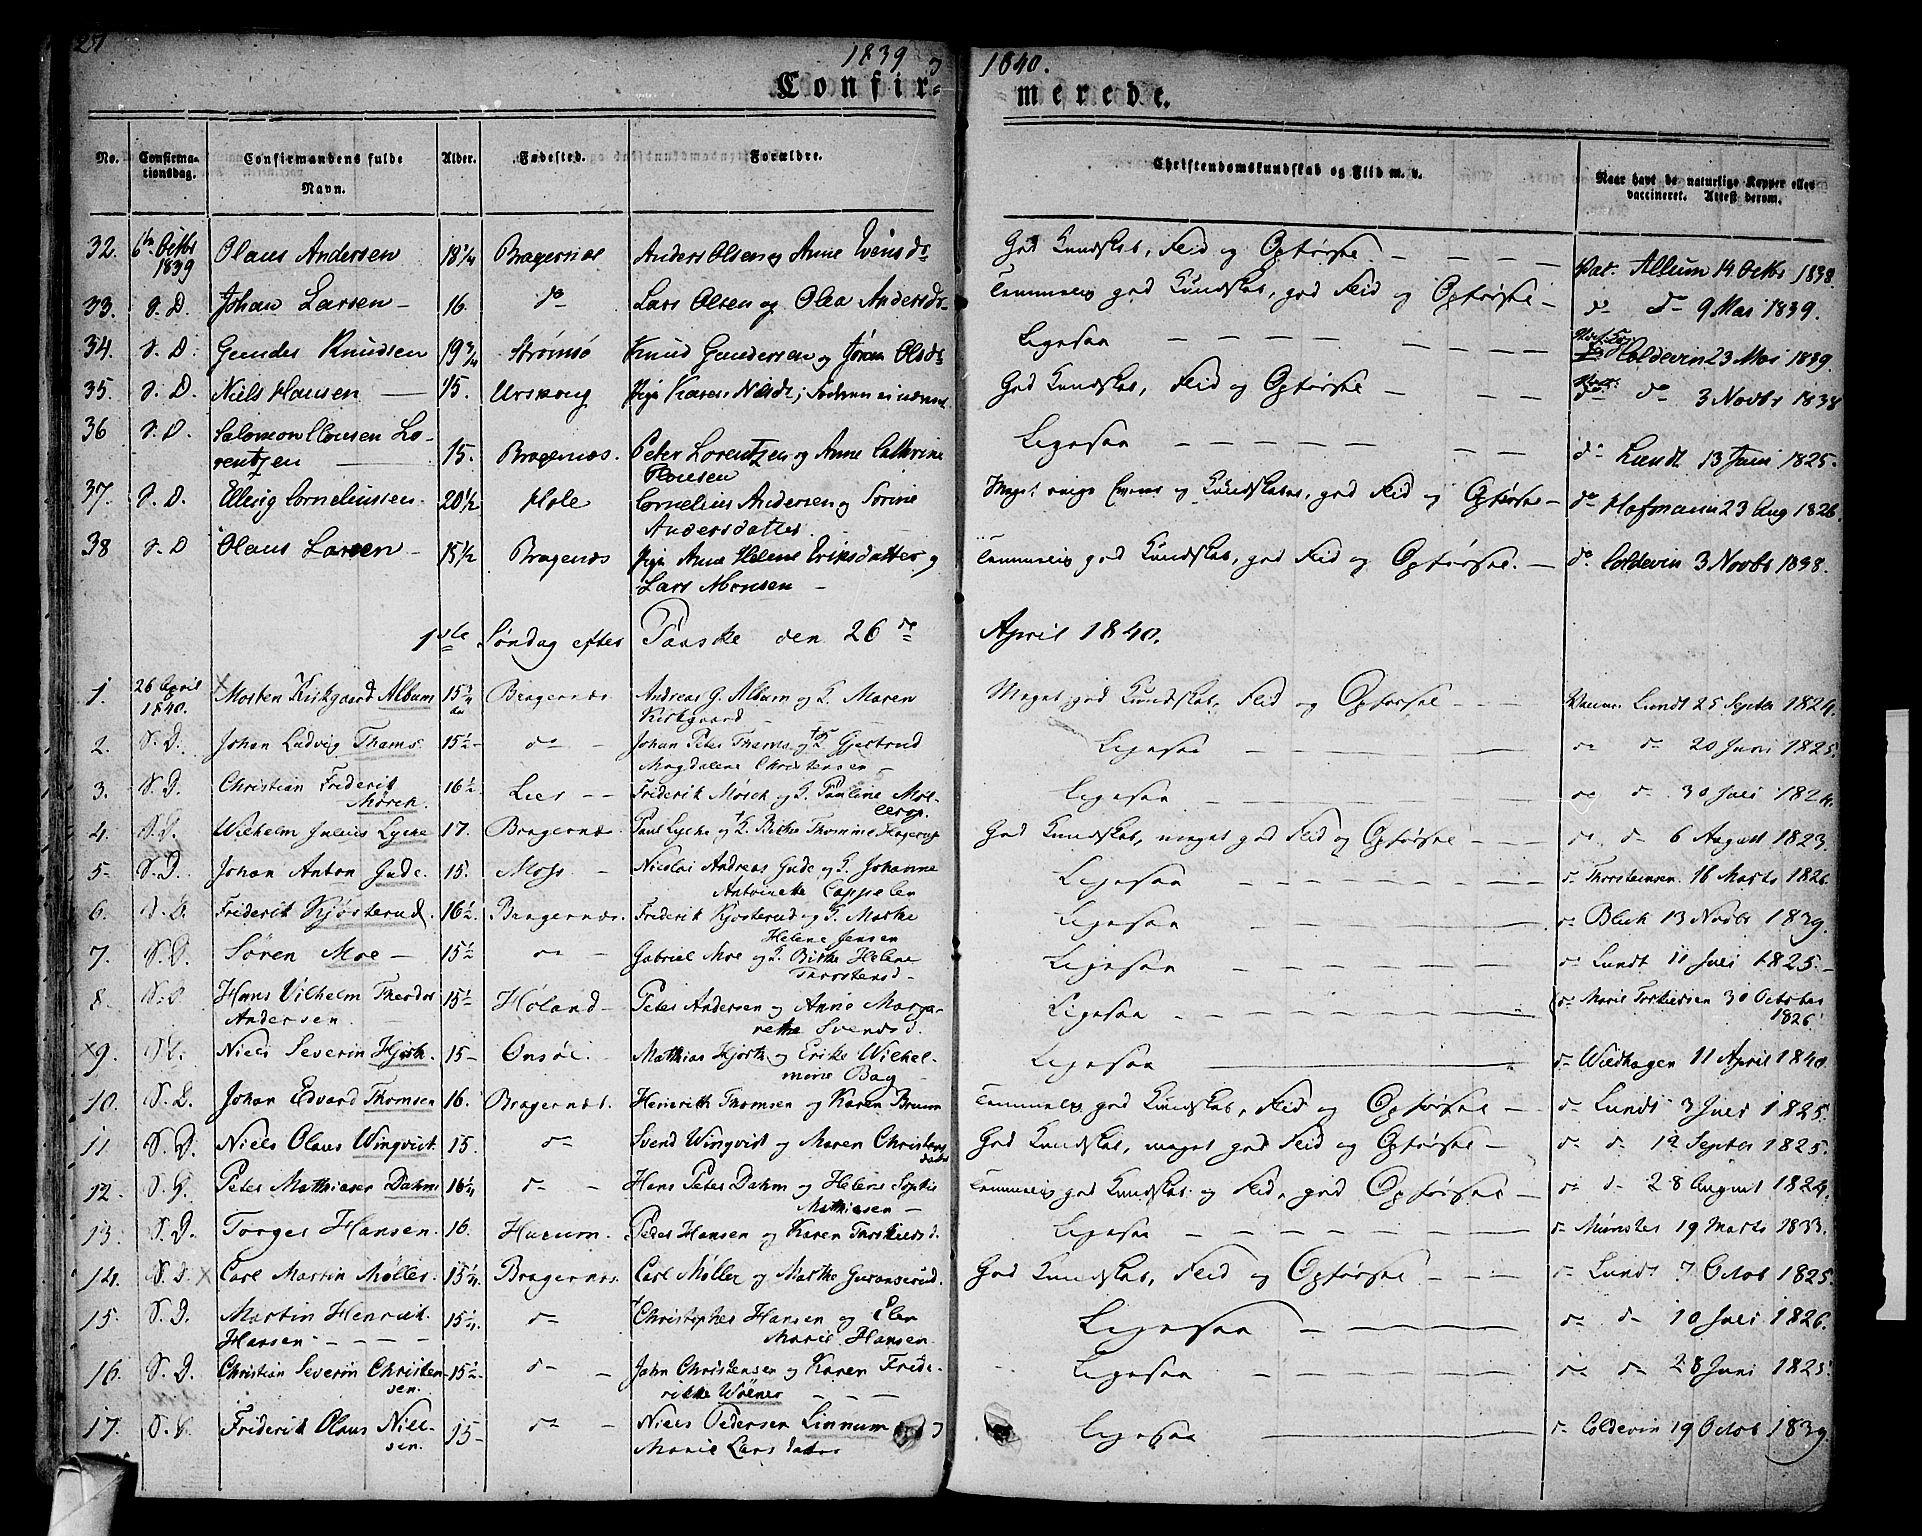 1839 1840.
Confir= merede.
No. Confirmationsdag. Confirmandens fulde Navn. Alder. Fødested. Forældre. Christendomskundskab og Flid m. v. Naar havt de naturlige Kopper eller vaccineret. Attest derom.
32. 6te Octbr 1839 Olaus Andersen 18 1/4 Bragernæs Anders Olsen og Anne Iversdr God Kundskab, Flid og Opførsel Vac. Allum 14 Octbr 1838.
33. S. D. Johan Larsen 16. do Lars Olsen og Olea Andersdr Temmelig god Kundskab, god Flid og Opførsel do do 9 Mai 1839.
34. S. D. Gunder Knudsen 19 3/4 Strømsø Knud Gundersen og Jøran Olsdr Ligesaa Coldevin 23 Mai 1839.
35. S. D. Niels Hansen 15. Urskoug Pige Karen Nilsdr; God Kundskab, Flid og Opførsel do do 3 Novbr 1838
36 S. D. Salomon Clausen Lorentzen 15. Bragernæs. Peter Lorentzen og Anne Cathrine Clausen Ligesaa do Lundt 13 Juni 1825.
37. S. D. Ellevig Corneliussen 20 1/2 Hole Cornelius Andersen og Sorine Andersdatter Meget ringe Evner og Kundskaber, god Flid og Opførsel do Hofmann 23 Aug 1826.
38 S. D Olaus Larsen 15 1/2 Bragernæs Pige Anne Helene Eriksdatter og Lars Monsen Temmelig god Kundskab, god Flid og Opførsel. do Coldevin 3 Novbr 1838.
1ste Søndag efter Paaske den 26de April 1840.
1. 26 April 1840. Morten Kirkgaard Album 15 1/4 Bragernæs Andreas G. Album og K. Maren Kirkgaard Meget god Kundskab, Flid og Opførsel Vaccin. Lundt 25 Septbr 1824.
2. S. D. Johan Ludvig Thams 15 1/2 do Johan Peter Thams og K. Gjertrud Magdalene Christensen Ligesaa do do 20 Juni 1825.
3. S. D. Christian Friderik Mørch. 16 1/2 Lier Friderik Mørch og K. Pauline Moltberg. Ligesaa do do 30 Juli 1824.
4. S. D. Wilhelm Julius Lyche 17. Bragernæs Paul Lyche og K. Birthe Thomine Hagerup God Kundskab, meget god Flid og Opførsel do do 6 August 1823.
5 S. D. Johan Anton Gude. 15. Moss Nicolai Andreas Gude og K. Johanne Antoinette Cappelen Ligesaa do Thorsteinsen 16 Marts 1826.
6. S. D. Friderik Kjøsterud. 16 1/2 Bragernæs. Friderik Kjøsterud og K. Marthe Helene Jensen Ligesaa do Blich 13 Novbr 1839.
7. S. D. Søren Moe 15 1/2 do Gabriel Moe og K. Birthe Helene Thorstensd. Ligesaa do Lundt 11 Juli 1825.
8. S. D. Hans Vilhelm Theodor Andersen 15 1/2 Høland Peter Andersen og Anne Margarethe Svendsd. Ligesaa do Marie Torkildsen 30 October 1826.
x9. S. D. Niels Severin Hjorth. 15 Onsøe. Matthias Hjorth og Erike Wilhelmine Bay Ligesaa do Wildhagen 11 April 1840.
10. S. D. Johan Edvard Thomsen 16. Bragernæs. Heinrich Thomsen og Karen Bruun Temmelig god Kundskab, Flid og Opførsel do Lundt 3 Juli 1825.
11 S. D. Niels Olaus Winqvist. 15. do Svend Winqvist og Maren Christensdatter God Kundskab, meget god Flid og Opførsel do do 12 Septbr 1825.
12. S. D. Peter Mathiasen Dahm 16 1/4 do Hans Peter Dahm og Helene Sophie Mathiesen Temmelig god Kundskab og Flid, god Opførsel do do 28 August 1824.
13. S. D. Torger Hansen. 16. Hurum. Peder Hansen og Karen Thorkildsd. Ligesaa do Münster 19 Marts 1833.
14. S. D. x Carl Martin Møller. 15 1/4 Bragernæs. Carl Møller og Marthe God Kundskab, Flid og Opførsel do Lundt 7 Octob 1825.
15. S. D. Martin Henrik Hansen 15 1/4 do Christopher Hansen og Elen Marie Hansen Ligesaa do do 10 Juli 1826.
16. S. D. Christian Severin Christensen. 15 1/2 do John Christensen og Karen Friderikke Wølner Ligesaa do do 28 Juni 1825.
17. S. D. Friderik Olaus Nielsen. 15 do Niels Pedersen Linnum og Marie Larsdatter Ligesaa do Coldevin 19 Octob 1839.